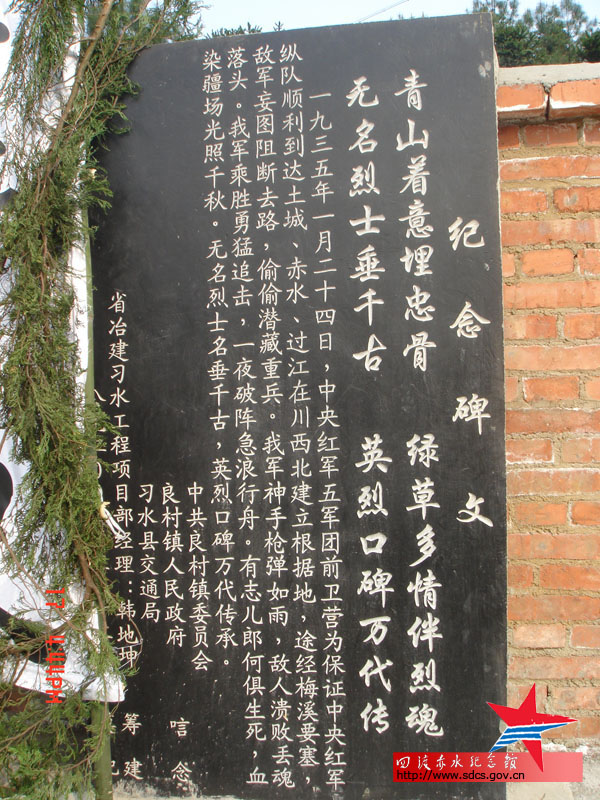 纪念碑文
青山着意埋忠骨 绿草多情伴烈魂
无名烈士垂千古 英烈口碑万代传
一九三五年一月二十四日，中央红军五军团前卫营为保证中央红军
纵队顺利到达土城、赤水、过江在川西北建立根据地，途经梅溪要塞，
敌军妄图阻断去路，偷偷潜藏重兵。我军神手枪弹如雨，敌人溃败丢魂
落头。我军乘胜勇猛追击，一夜破阵急浪行舟。有志儿郎何俱生死，血
染疆场光照千秋。无名烈士名垂千古，英烈口碑万代传承。
中共良村镇委员会
良村镇人民政府 唁念
习水县交通局
省冶建习水工程项目部经理：韩地坤 筹建
四渡赤水纪念馆
http://www.sdcs.gov.cn